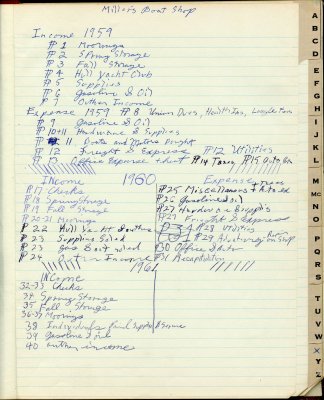 Miller's Boat Shop
Income 1959
# 1 Moorings
# 2 Spring Storage
# 3 Fall Storage
# 4 Hull Yacht Club
# 5 Supplies
# 6 Gasoline & Oil
# 7 Outher Income
Expense 1959 # 8 Union Dues,
# 9 Gasoline & Oil
# 10+11 Hardware & Supplies
# 11 Boats and Motors Freight
# 12 Freight & Express # 12 Utilities
# 13 Office Expense #14 Taxes,
Income 1960 Expense
P.17 Checks
#25 Miscellaneous
#18 Spring Storage
#26 Gasoline & Oil
#19 Fall Storage
#27 Hardware & Supplies
#20-21 Moorings
#27 Freight & Express
# 22 Hull Yacht
P 34 #28 Utilities
# 23 Supplies Sold
#29 Advertising
# 23 Gas Boat sold
#30 Office
# 24 Outher Income
#31 Recapitulation
1961
INCome
32-33 Checks
34 Spring Storage
35 Fall Storge
36-37 Moorings
38 Individuals
39 Gasoline & oil
40 outher incomes
A
B
C
D
E
F
G
H
I
J
K
L
M
Mc
N
O
P
Q
R
S
T
U
V
W
X
Y
Z